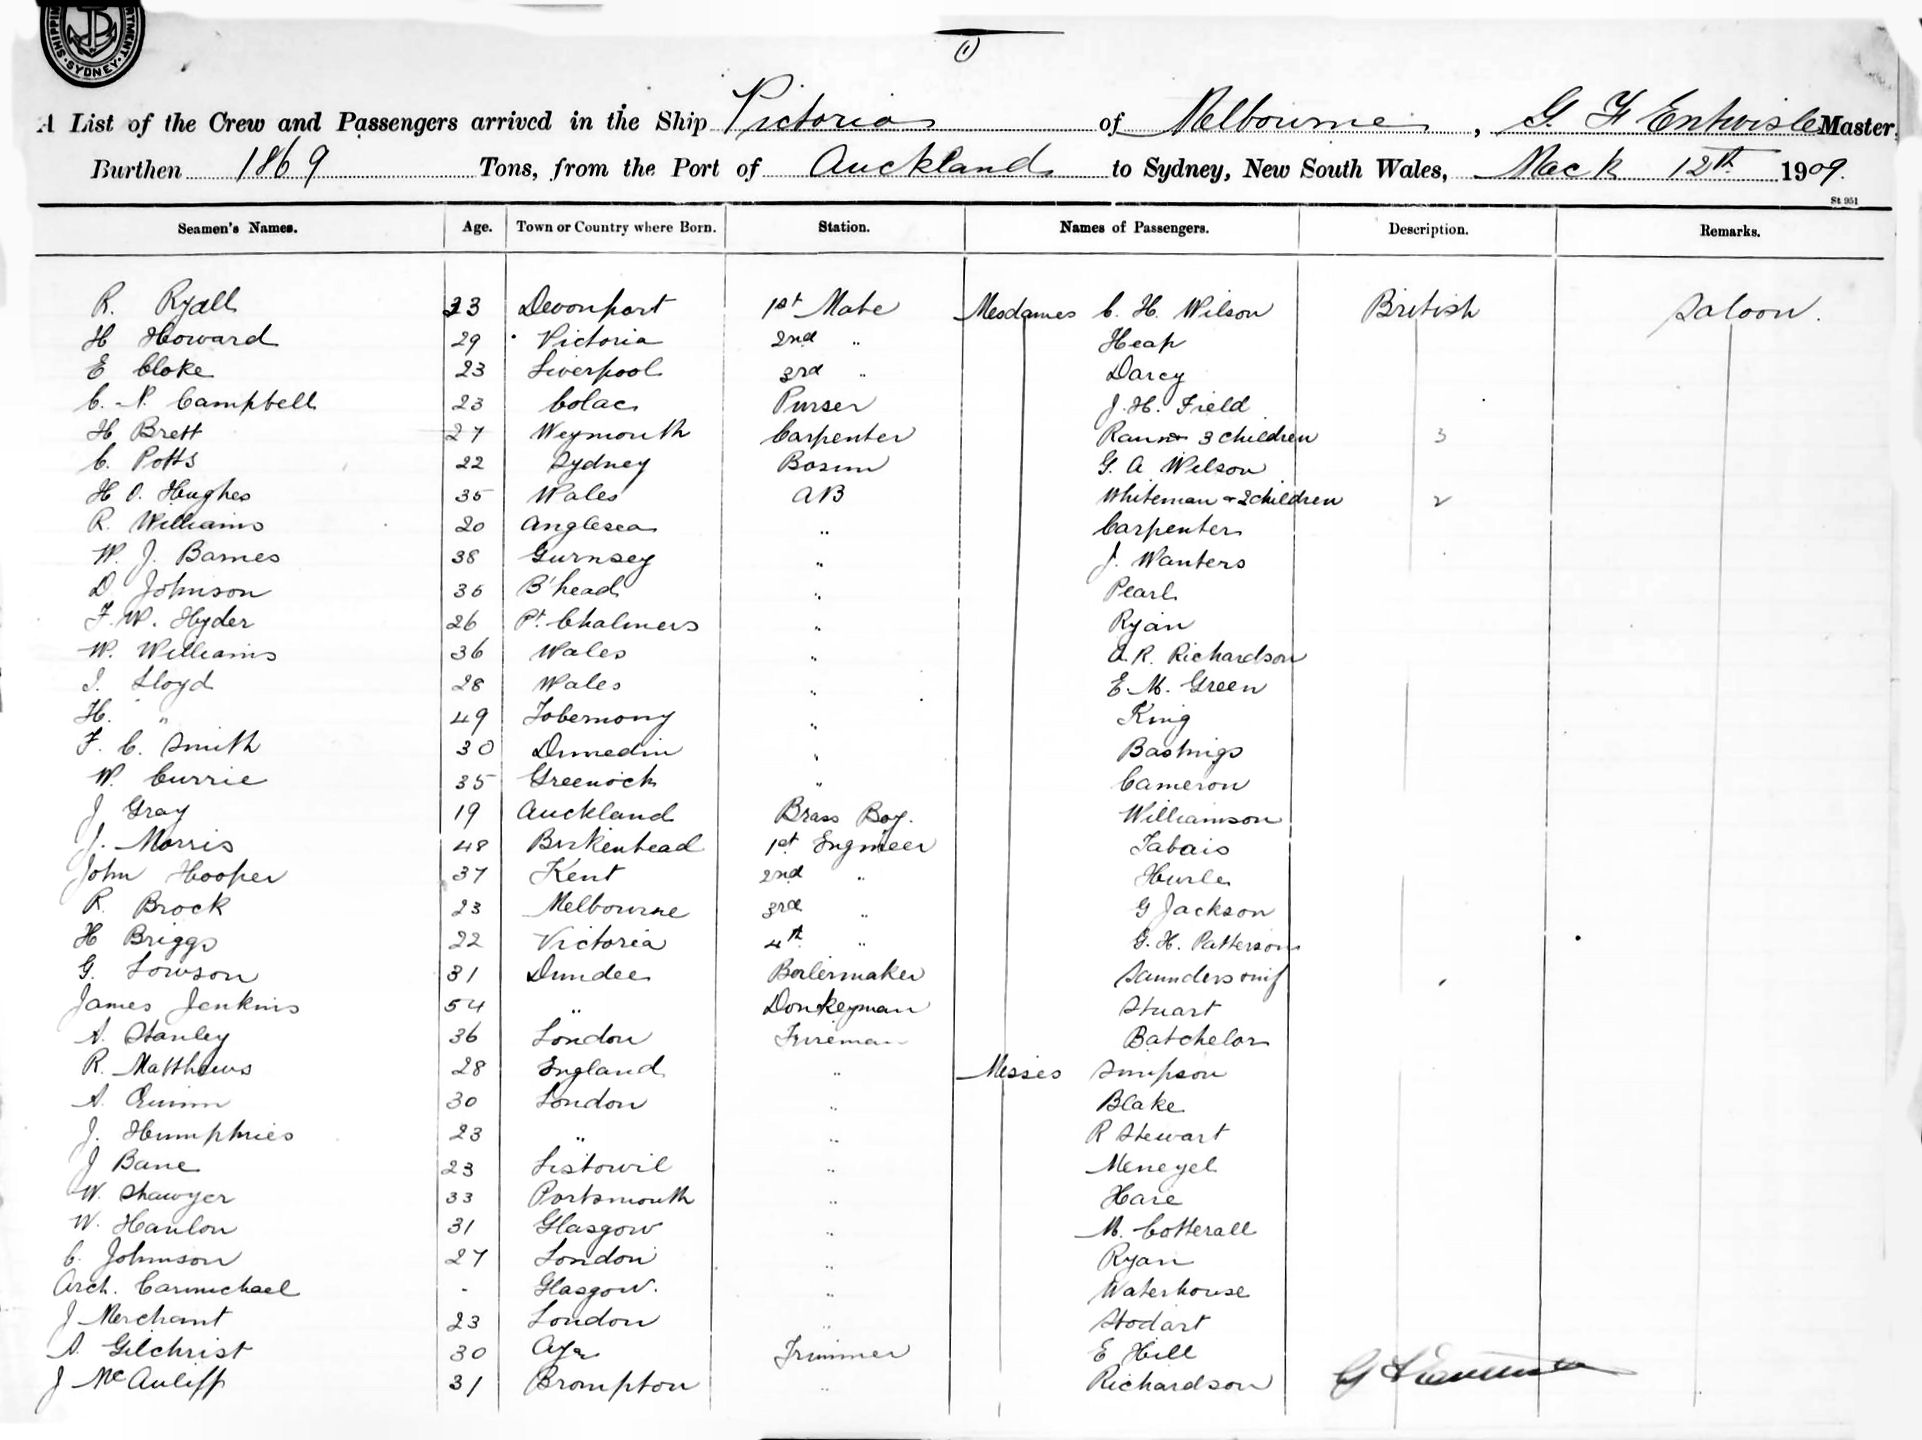 SHIPPING SYDNEY
(1)
A List of the Crew and Passengers arrived in the Ship Victoria of Melbourne, G. F. Entwisle Master,
Burthen 1869 Tons, from the Port of Auckland to Sydney, New South Wales, March 12th 1909.
St 951
Seamen's Names. Age. Town or Country where Born. Station. Names of Passengers. Description. Remarks.
R. Ryall 33 Devonport 1st Mate Mesdames C. H. Wilson British Saloon.
H Howard 29 Victoria 2nd " Heap
E Cloke 23 Liverpool 3rd " Darcy
C. N. Campbell 23 Colac Purser J. H. Field
H Brett 27 Weymouth Carpenter 3 children 3
C. Potts 22 Sydney Bosun G. A Wilson
H O. Hughes 35 Wales AB Whiteman + 2 children 2
R. Williams 20 Anglesea " Carpenter
W. J. Barnes 38 Gurnsey " J. Wanters
D Johnson 36 B'head " Pearl
F. W. Hyder 26 Pt. Chalmers " Ryan
W. Williams 36 Wales " A. R. Richardson
I. Lloyd 28 Wales " E. M. Green
H. " 49 Tobermony " King
F. C. Smith 30 Dunedin " Bastings
W. Currie 35 Greenock " Cameron
J Gray 19 Auckland Brass Boy. Williamson
J. Morris 48 Birkenhead 1st Engineer
John Hooper 37 Kent 2nd " Hurle
R. Brock 23 Melbourne 3rd " G Jackson
H Briggs 22 Victoria 4th " G. H. Patterson
G. Lowson 31 Dundee Boilermaker
James Jenkins 54 " Donkeyman Stuart
A. Stanley 36 London Fireman Batchelor
R. Matthews 28 England " Misses Simpson
A. Quinn 30 London " Blake
J. Humphries 23 " " R Stewart
J Bane 23 Listowil "
W. Shawyer 33 Portsmouth " Hare
W. Hanlon 31 Glasgow " M. Cotterall
C. Johnson 27 London " Ryan
Arch. Carmichael - Glasgow. " Waterhouse
J Merchant 23 London " Stodart
A. Gilchrist 30 Ayr Trimmer E Hill
J McAuliff 31 Brompton " Richardson